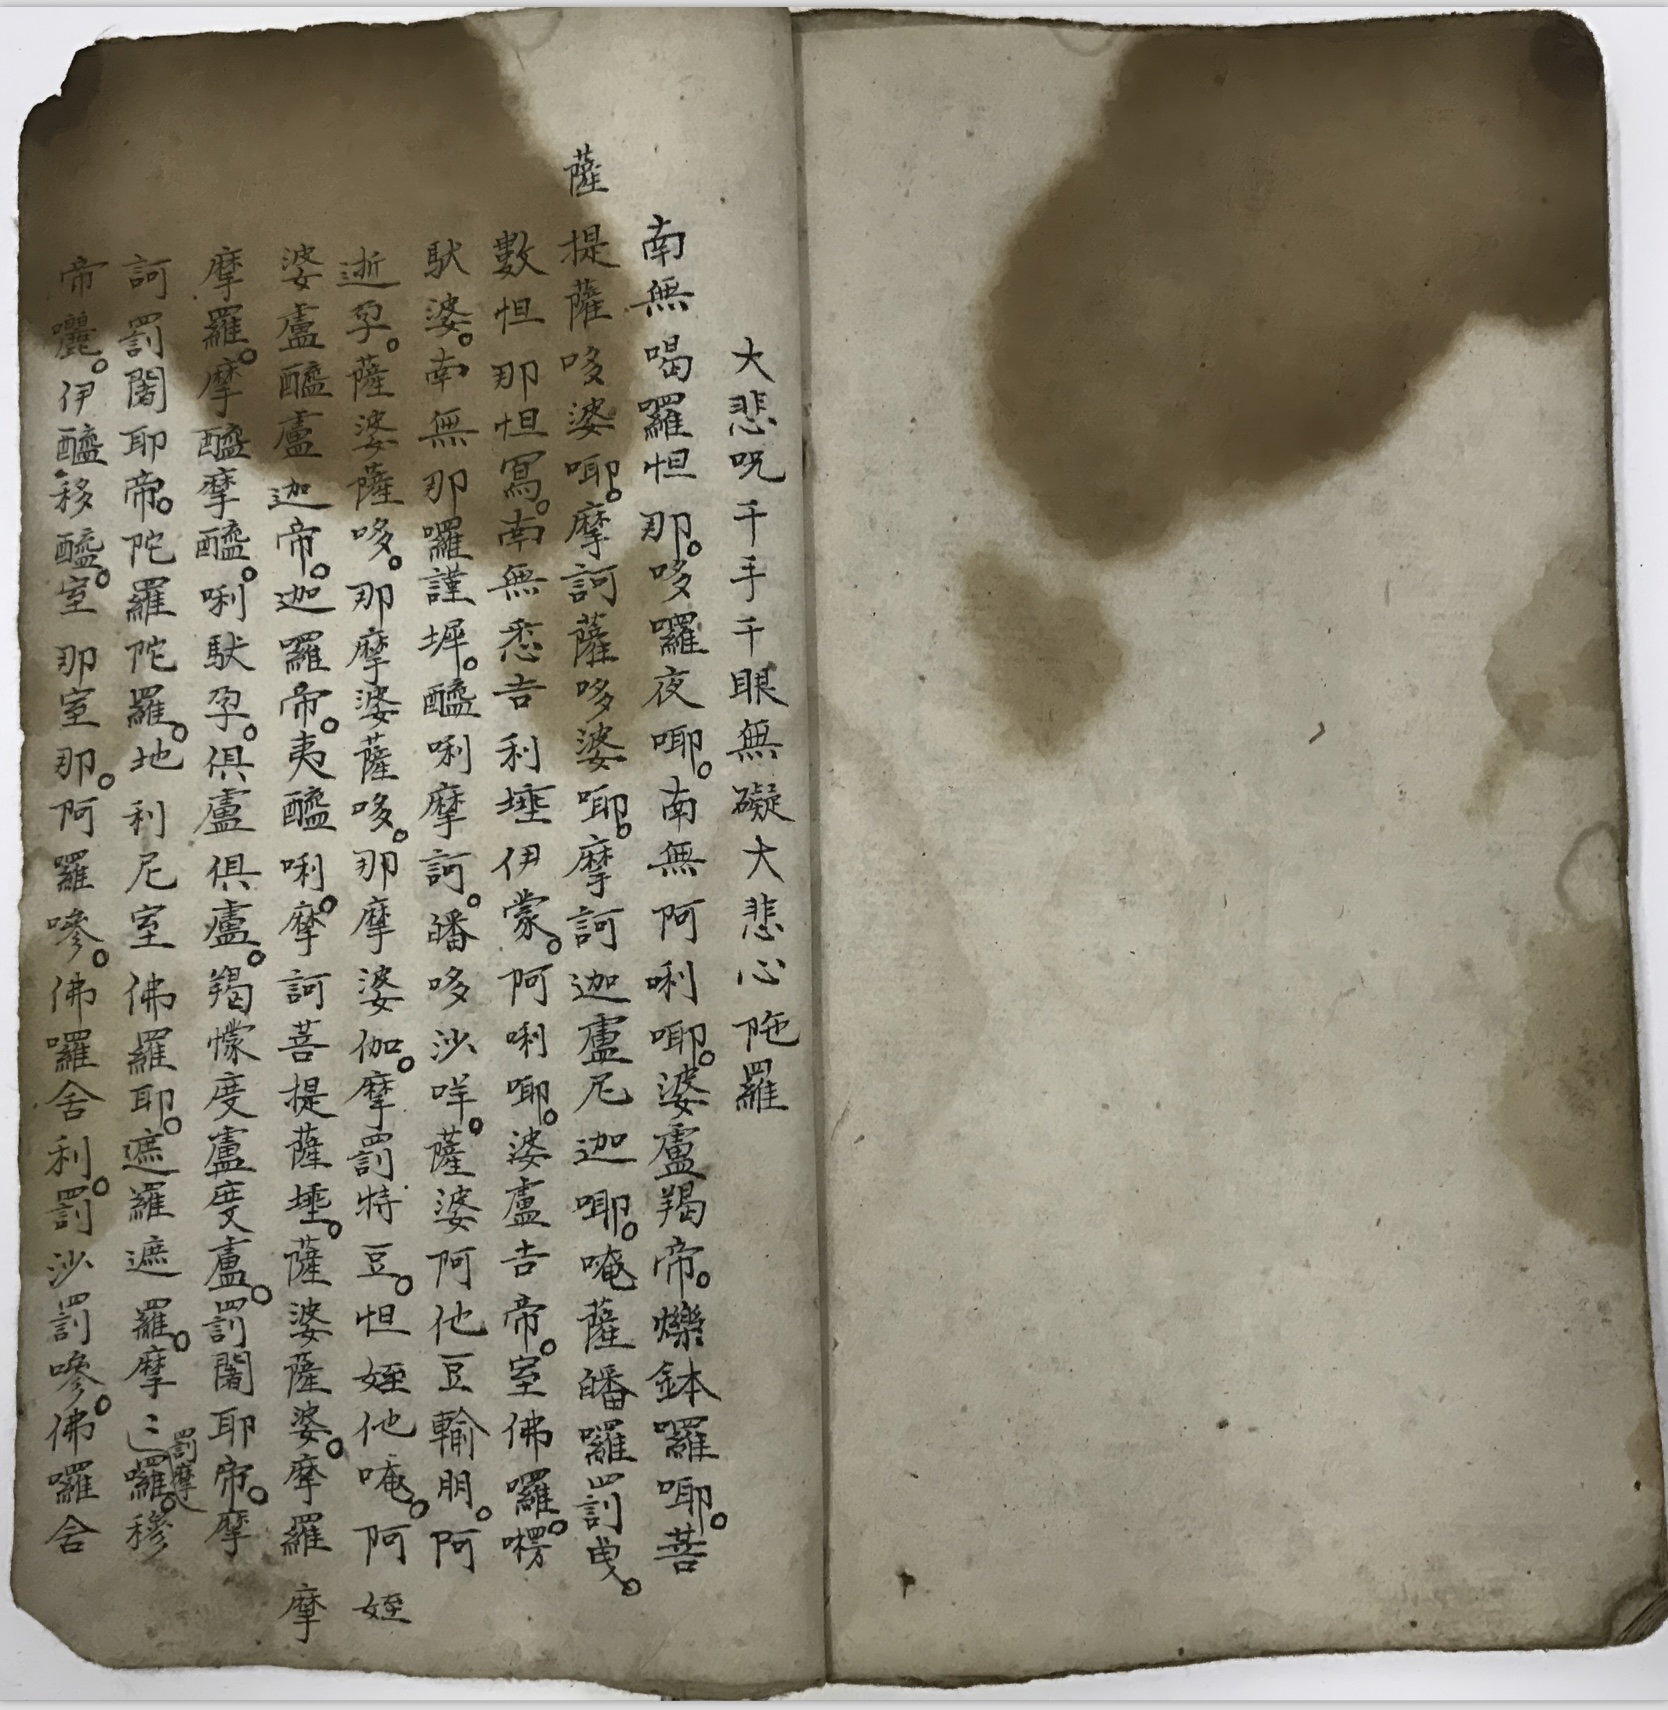 大悲呪千手千眼無礙大悲心陁羅
南無喝羅怛那。哆囉夜㖿。南無阿唎㖿。婆盧羯帝。爍鉢囉㖿。菩
薩提薩哆婆㖿。摩訶薩哆婆㖿。摩訶迦盧尼迦㖿。唵薩皤囉罰曳。
數怛那怛寫。南無悉吉利埵伊蒙。阿唎㖿。婆盧吉帝。室佛囉。楞
馱婆。南無那囉謹墀。醯唎摩訶。皤哆沙咩。薩婆阿他豆輸朋。阿
逝孕。薩婆薩哆。那摩婆薩哆。那摩婆伽。摩罰特豆。怛姪他唵。阿姪
婆盧醯盧迦帝。迦羅帝。夷醯唎。摩訶菩提薩埵。薩婆薩婆。摩羅摩
摩羅。摩醯摩醯。唎馱孕。俱盧俱盧。羯懞度盧度盧。罰闍耶帝。摩
訶罰闍耶帝。陀羅陀羅。地利尼室佛羅耶。遮羅遮羅。摩〻罰摩囉。穆
帝囇。伊醯移醯。室那室那。阿羅嘇。佛囉舍利。罰沙罰嘇。佛囉舍